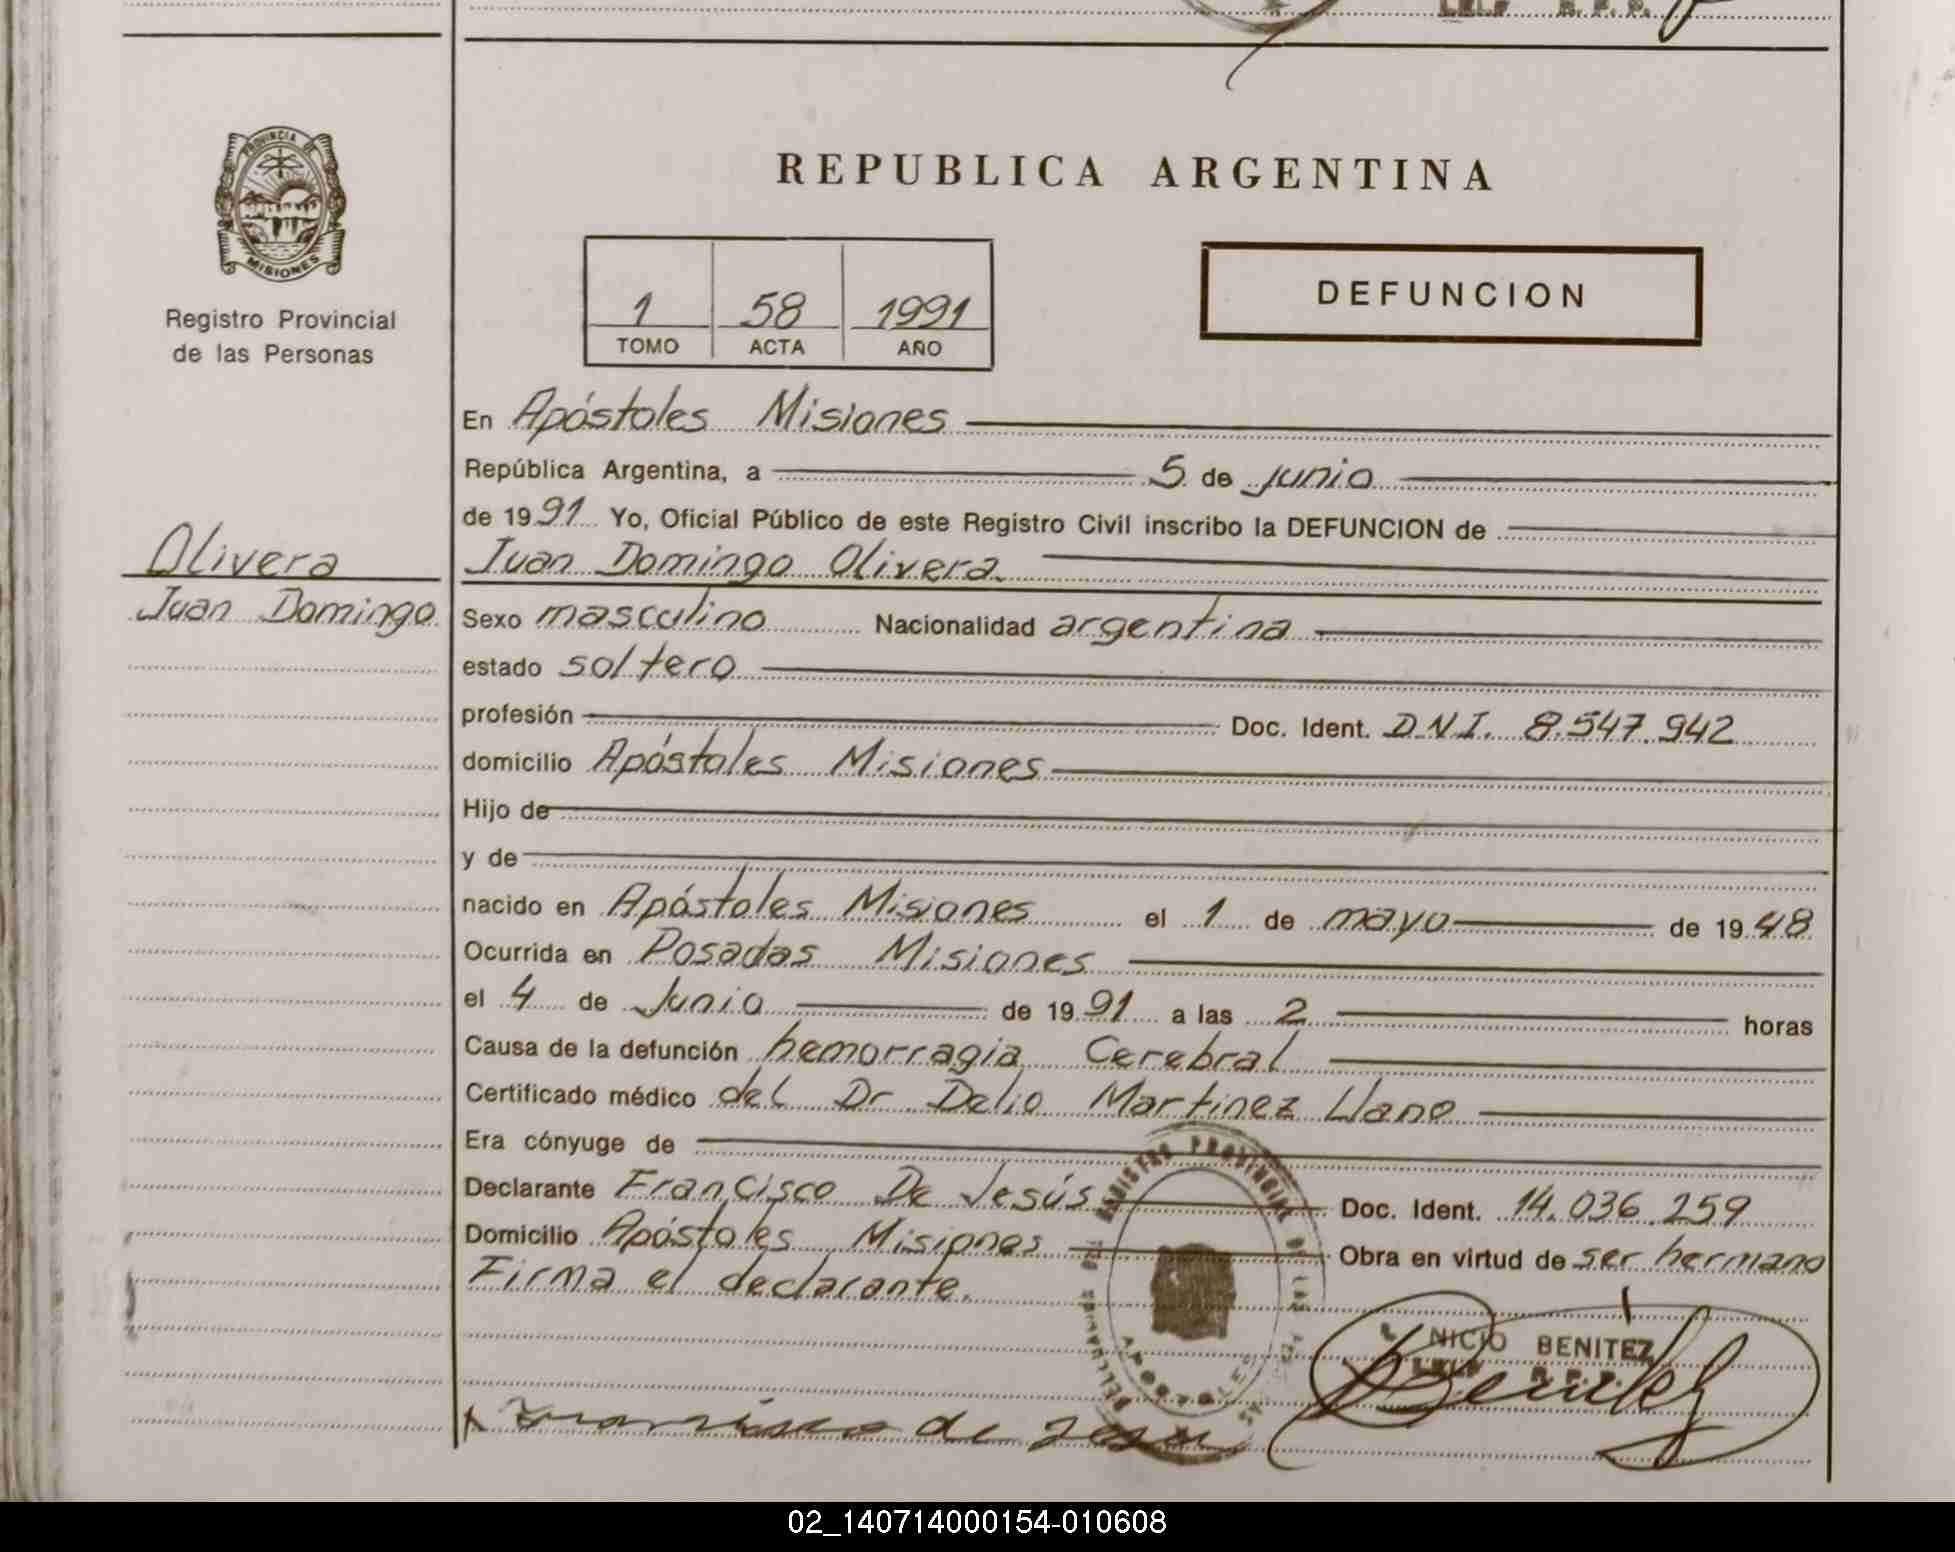 PROVINCIA DE
MISIONES
Registro Provincial
de las Personas
Olivera
Juan Domingo
REPUBLICA ARGENTINA
1 58 1991
TOMO ACTA AÑO
DEFUNCION
En Apóstoles Misiones
República Argentina, a 5 de junio
de 1991 Yo, Oficial Público de este Registro Civil inscribo la DEFUNCION de
Juan Domingo Olivera
Sexo masculino Nacionalidad argentina
estado soltero
profesión Doc. Ident. D.N.I. 8.547.942
domicilio Apóstoles Misiones
Hijo de
y de
nacido en Apóstoles Misiones el 1 de mayo de 1948
Ocurrida en Posadas Misiones
el 4 de Junio de 1991 a las 2 horas
Causa de la defunción hemorragia Cerebral
Certificado médico del Dr Delio Martinez Llano
Era cónyuge de
Declarante Francisco De Jesús Doc. Ident. 14.036.259
Domicilio Apóstoles Misiones Obra en virtud de ser hermano
Firma el declarante.
REGISTRO PROVINCIAL DE LAS
APOSTOLES
NICIO BENITEZ
Benitez
Francisco de Jesus
02_140714000154-010608